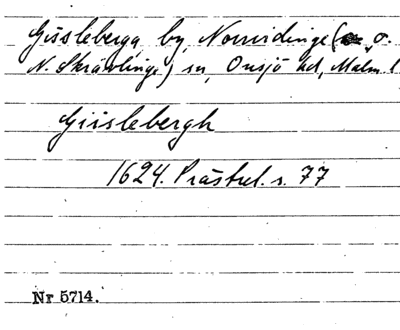 Gissleberga, by, Norrvidinge (o.
N. Skrävlinge) sn, Onsjö hd, Malm. l
Giislebergh
1624. Prästrel. s. 77
Nr 5714.